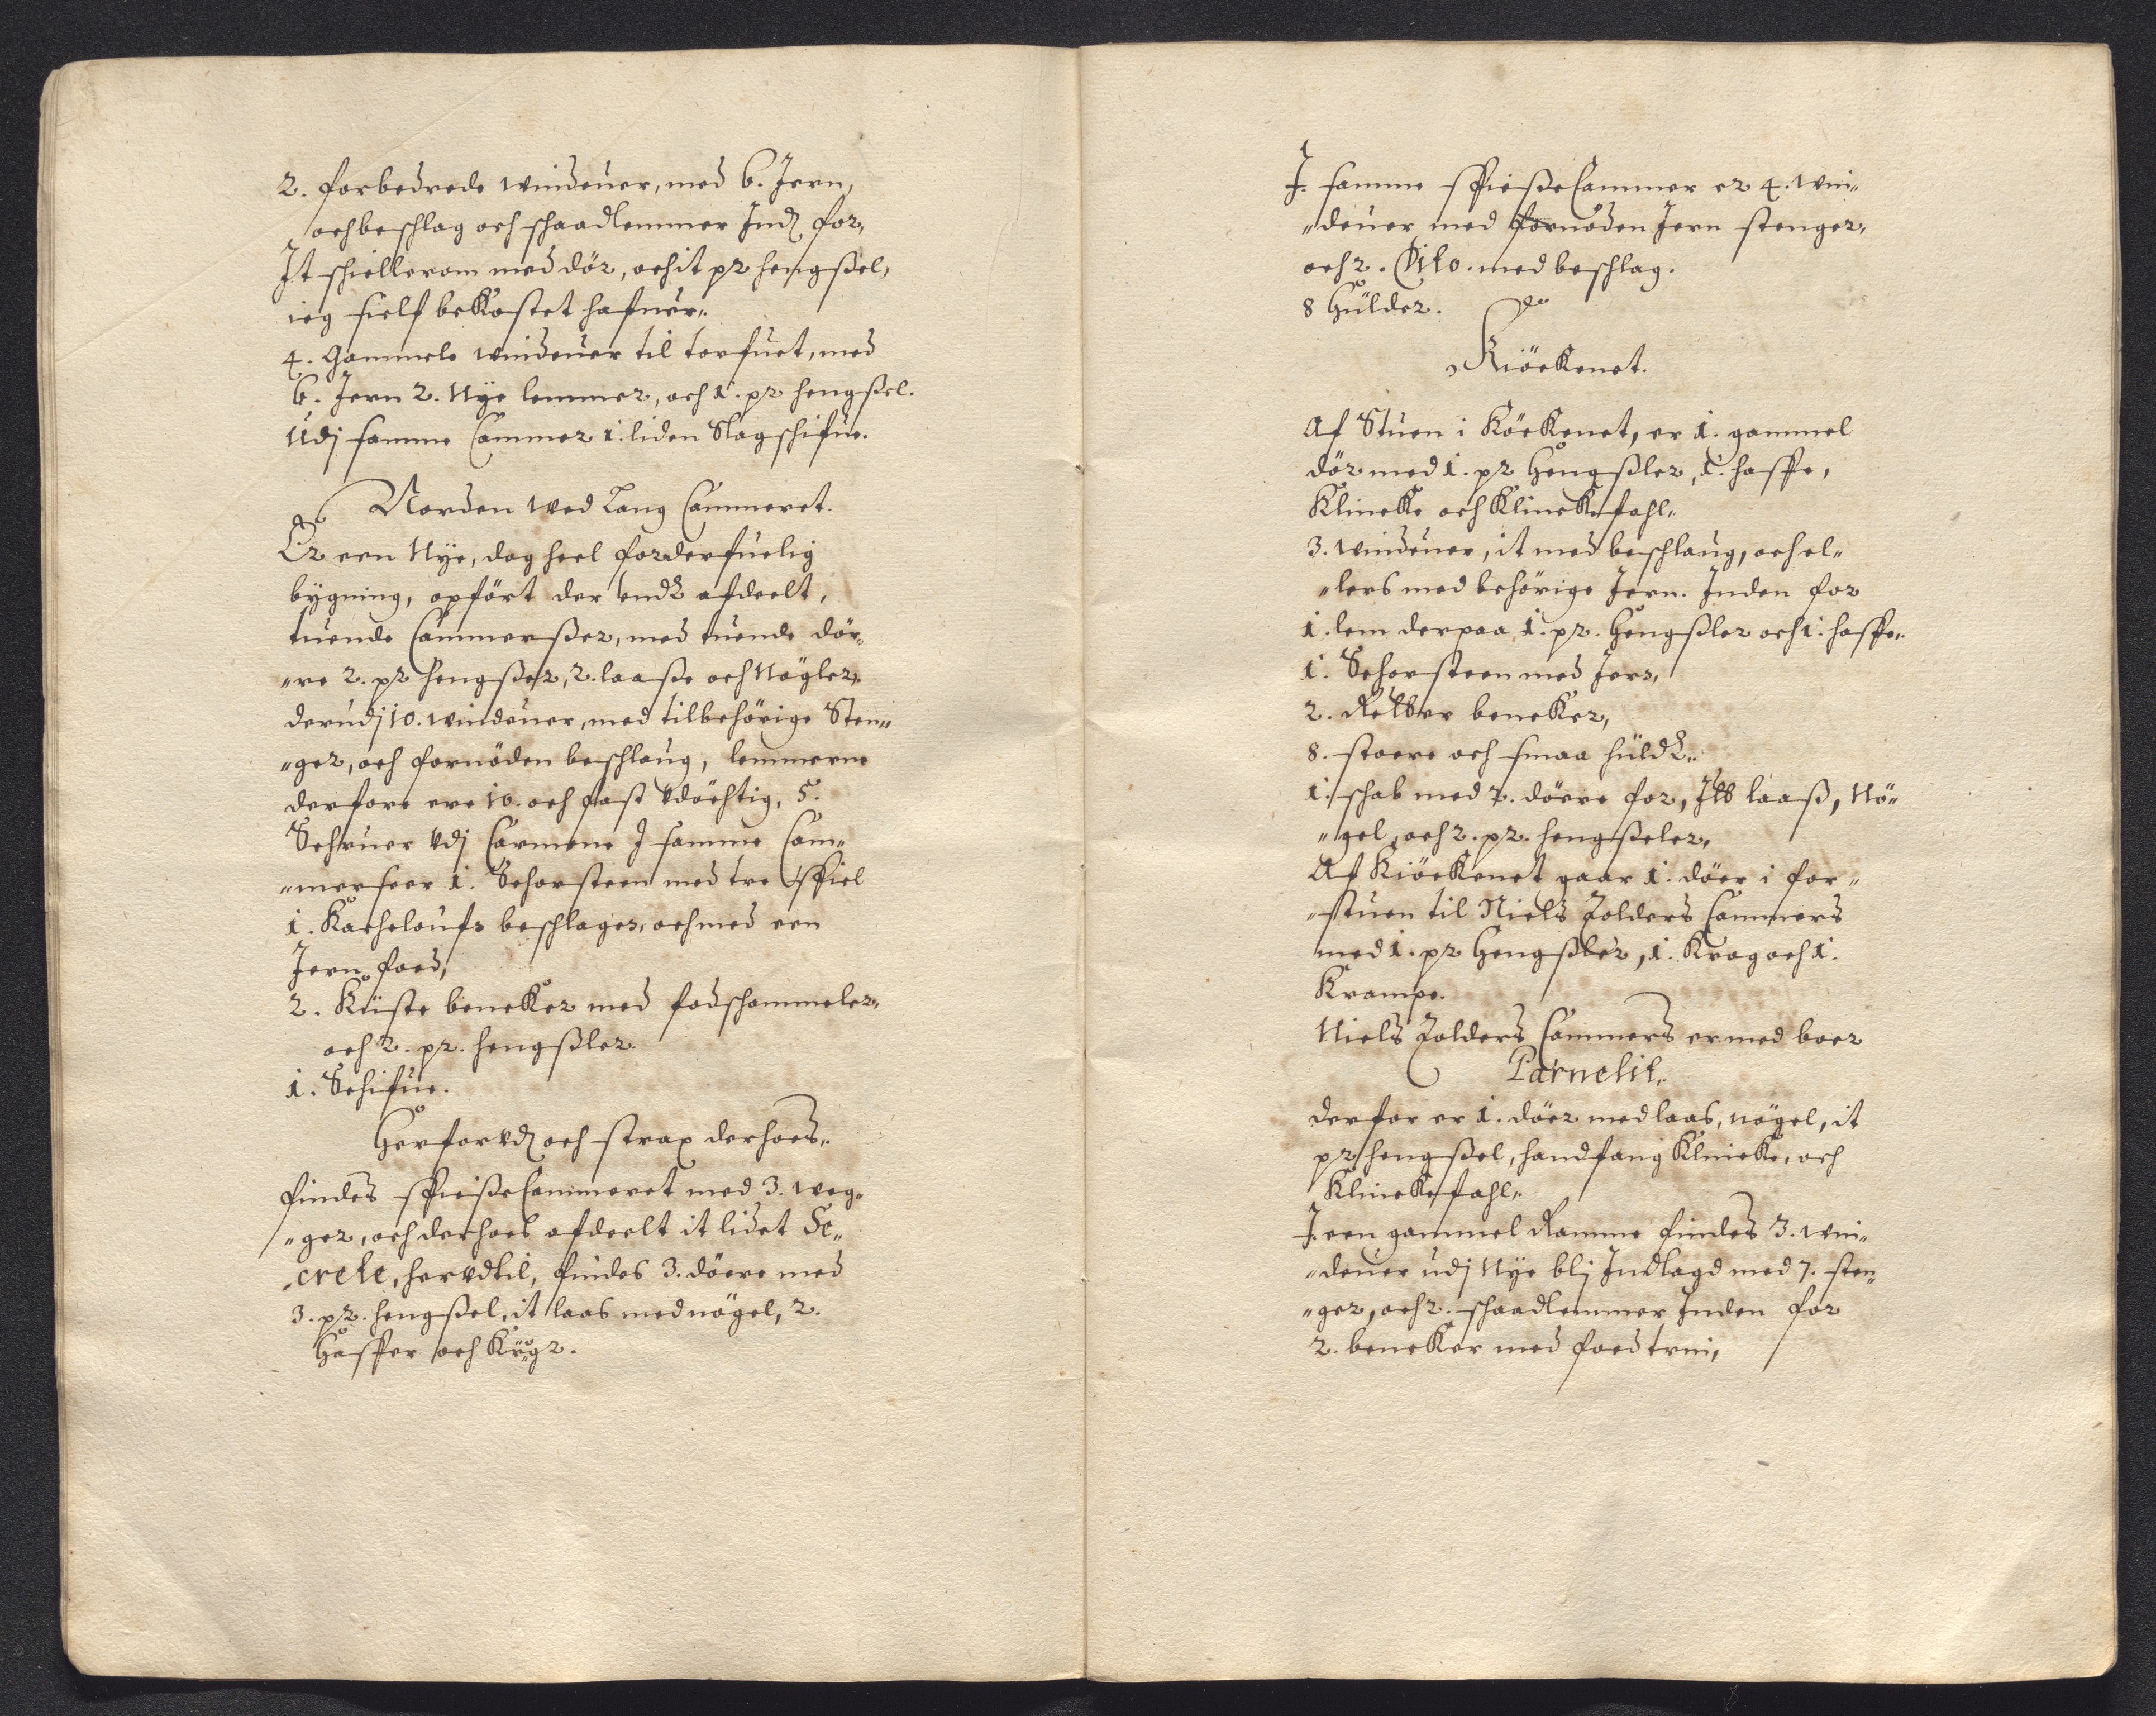 2. forbedrede windeuer, med 6. Jern,
och beschlag och schaadlemmer Ind for,
It schiellerom med dör, och it pr hengßel,
ieg sielf bekostet hafuer,.
4. Gammele windeuer til torfuet, med
6. Jern 2. Nÿe lemmer, och 1. pr hengßel.
Udj samme Cammer 1. liden Slagschifue.
Norden wed Lang Cammeret.
Er een Nÿe, dog heel forderfuelig
bÿgning, opfört der end afdeelt,
tuende Cammerßer, med tuende dör„
„re 2. pr hengßer, 2. laaße och Nögler,
derudj 10. windeuer, med tilbehörige Sten„
„ger, och fornöden beschlaug, lemmerne
derfore ere 10. och fast udöchtig, 5.
Schruer udj Carmene J samme Cam„
„merseer 1. Schorsteen med tre spiel
1. Kacheloufs beschlager, och med een
Jern foed,
2. Küste bencker med fodschammeler,
och 2. pr. hengßler.
1. Schifue.
Herforud och strax derhoes,.
findes spieße Cammeret med 3. weg„
„ger, och derhoes afdeelt it lidet Se„
„crete, herudtil, findes 3. döere med
3. pr. hengßel, it laas med nögel, 2.
Haspper och Krog.
J. samme spieße Cammer er 4. win„
„deuer med fornöden Jern stenger,
och 2. Dito. med beschlag.
8 Hülder.
Kiöckenet.
Af Stuen i Köckenet, er 1. gammel
dör med 1. pr Hengßler, 1. haspe,
Klincke och Klinckefahl,.
3. windeuer, it med beschlaug, och el„
„lers med behörige Jern. Inden for
1. lem derpaa 1. pr. Hengßler och 1. haspe,.
1. Schorsteen med Jern,
2. Retter bencker,
8. stoere och smaa hülder,.
1. schab med 2. döere for, Its laaß, Nö„
„gel, och 2. pr. hengßeler,
Af Kiöckenet gaar 1. döer i for„
„stuen til Niels Zolders Cammers
med 1. pr Hengßler, 1. Krog och 1.
Krampe.
Niels Zolders Cammers er med boer
Parnelit,.
derfor er 1. döer med laas, nögel, it
pr hengßel, handfang Klincke, och
Klinckefahl,.
J. een gammel Ramme findes 3. win„
„deuer udj Nÿe blj Indlagd med 7. sten„
„ger, och 2. schaadlemmer Inden for
2. bencker med foed trin,